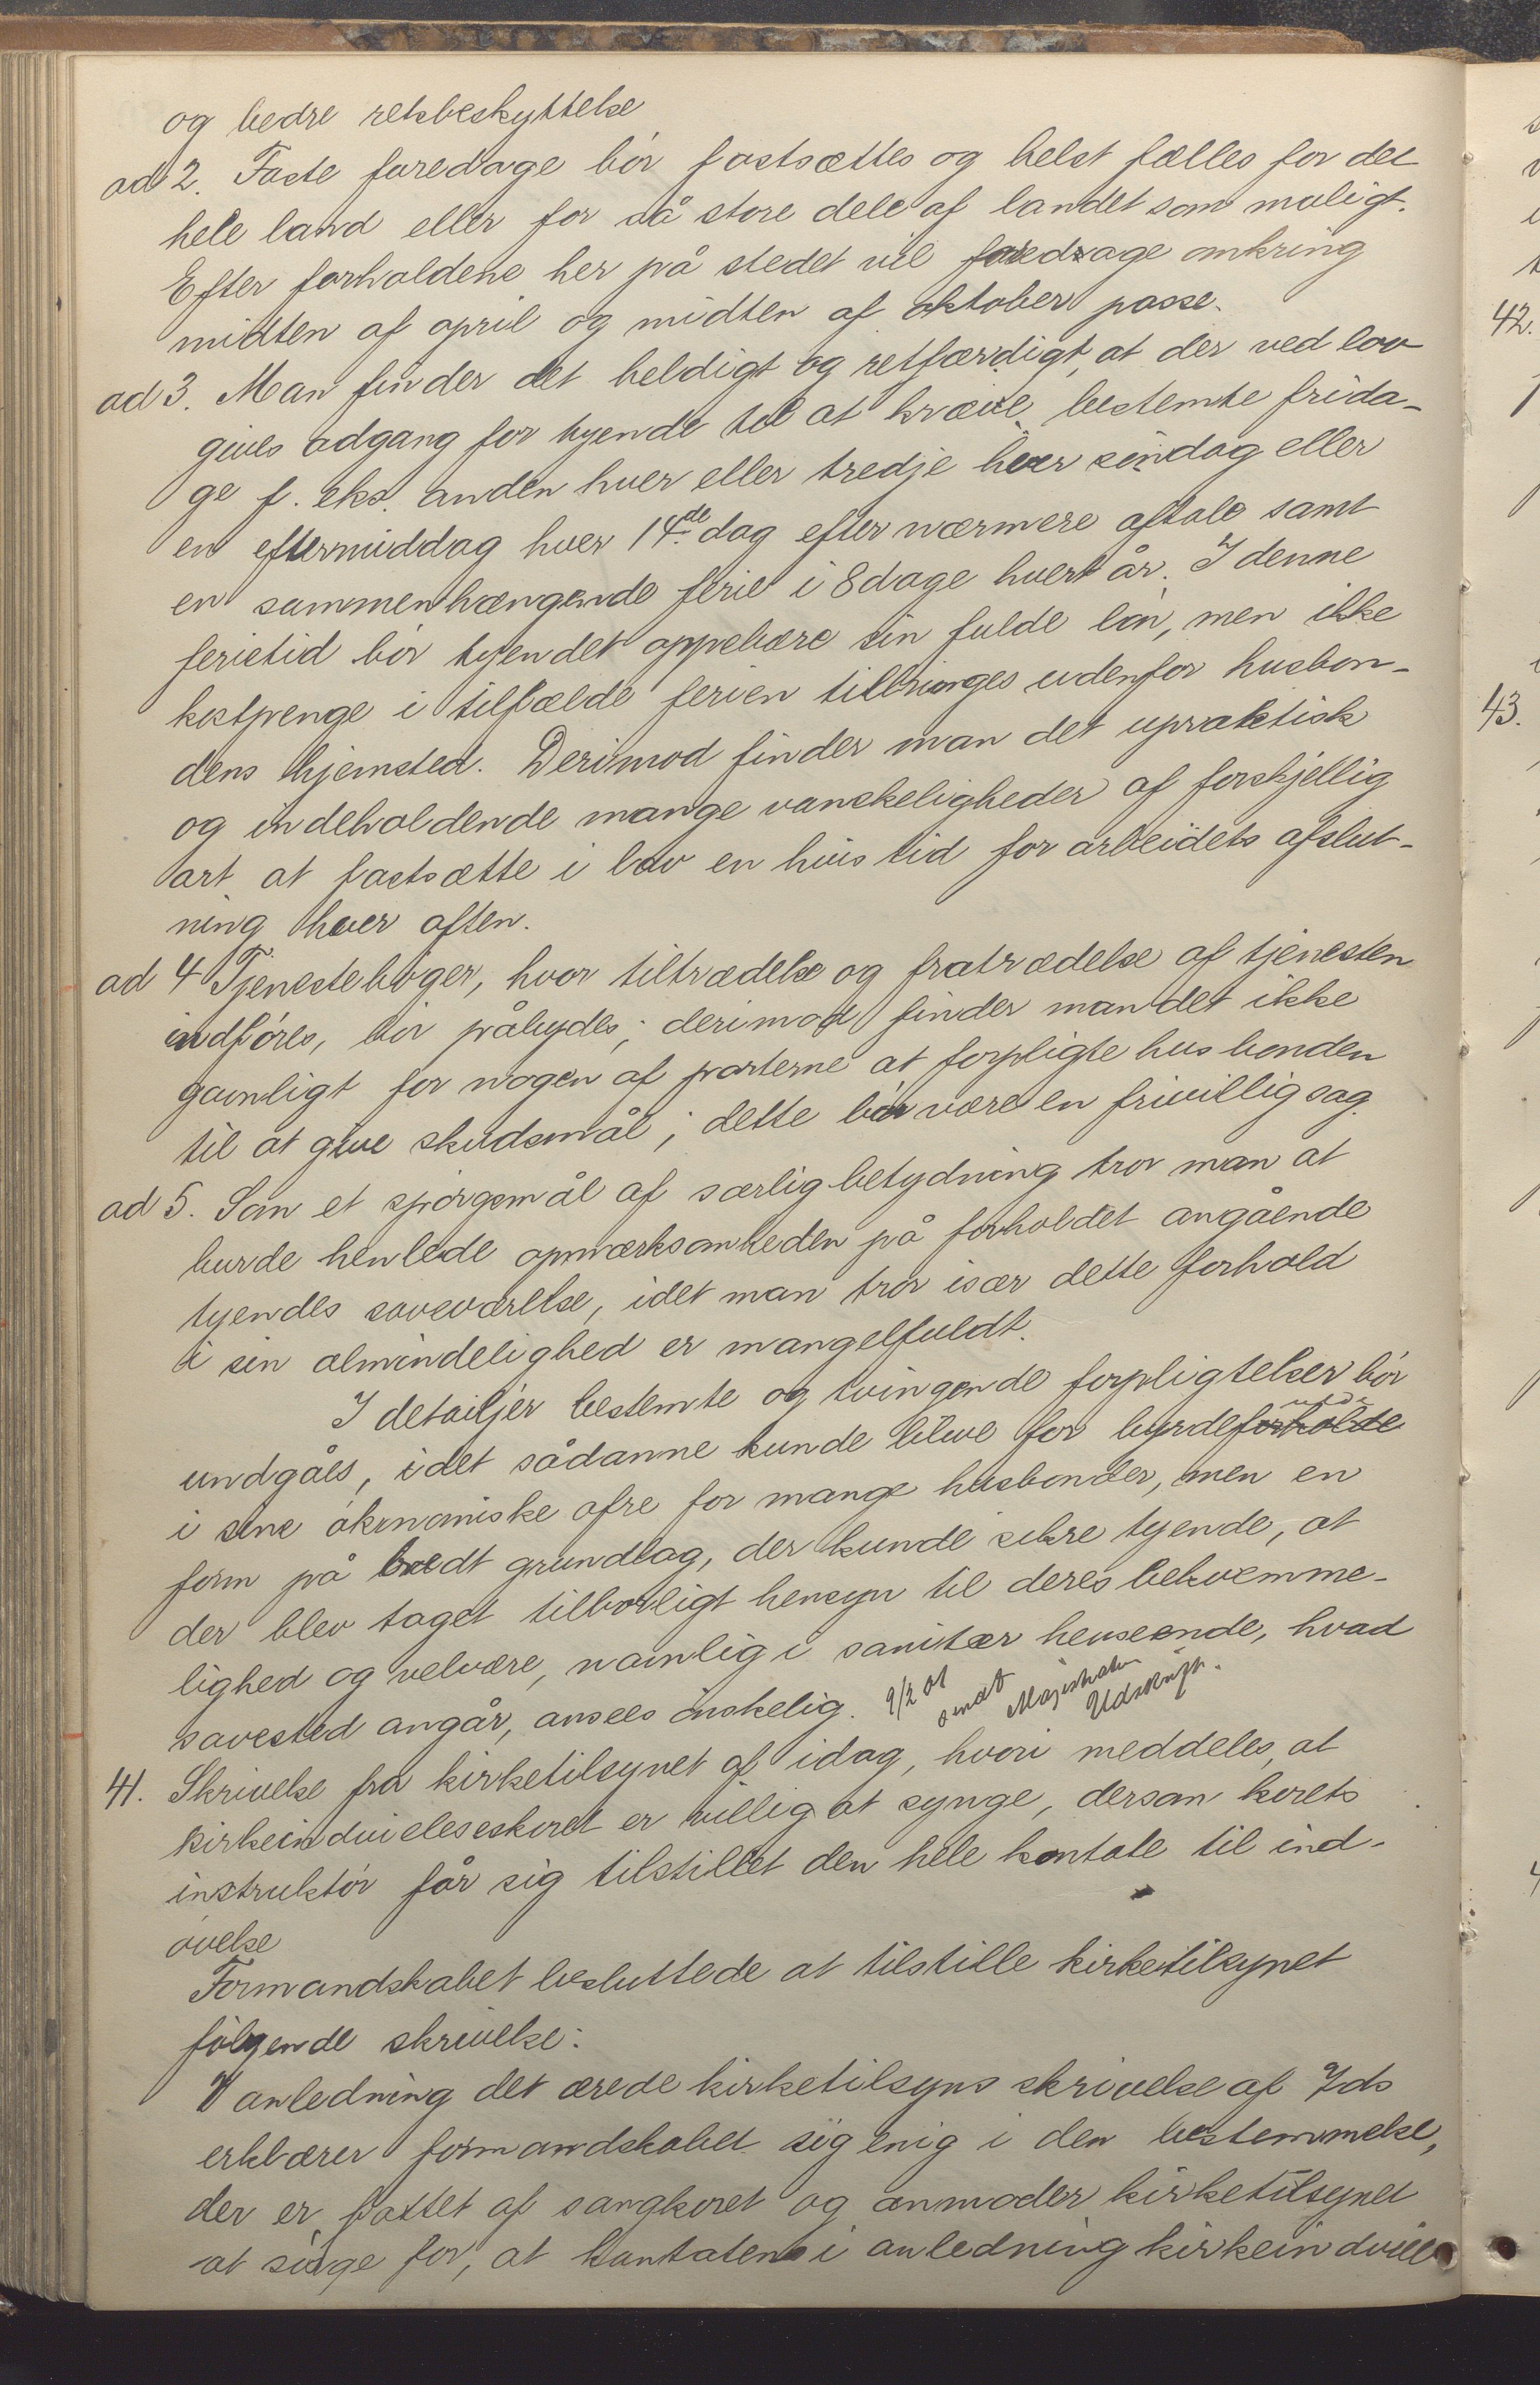 og bedre retsbeskyttelse
ad 2. Faste faredage bör fastsættes og helst fælles for det
hele land eller for så store dele af landet som muligt.
Efter forholdene her på stedet vil faredage omkring
midten af april og midten af oktober passe.
ad 3. Man finder det heldigt og retfærdigt, at der ved lov
gives adgang for tyende til at kræve bestemte frida-
ge f. eks. anden hver eller tredje hver söndag eller
en eftermiddag hver 14de dag efter nærmere aftale samt
en sammenhængende ferie i 8 dage hvert år. I denne
ferietid bör tyendet oppebære sin fulde lön, men ikke
kostpenge i tilfælde ferien tilbringes udenfor husbon-
dens hjemsted. Derimod finder man det upraktisk
og indeholdende mange vanskeligheder af forskjellig
art at fastsætte i lov en hvis tid for arbeidets afslut-
ning hver aften.
ad 4 Tjenesteböger, hvor tiltrædelse og fratrædelse af tjenesten
indföres, bör påbydes; derimod finder man det ikke
gavnligt for nogen af parterne at forpligte husbonden
til at give skudsmål; dette bör være en frivillig sag.
ad 5. Som et spörgsmål af særlig betydning tror man at
burde henlede opmærksomheden på forholdet angående
tyendes soveværelse, idet man tror især dette forhold
i sin almindelighed er mangelfuldt.
I detailjer bestemte og tvingende forpligtelser bör
undgåes, idet sådanne kunde blive for byrdeforholde
i sine ökonomiske ofre for mange husbonder, men en
form på bredt grundlag, der kunde sikre tyende, at
der blev taget tilbörligt hensyn til deres bekvemme-
lighed og velvære, navnlig i sanitær henseende, hvad
sovested angår, ansees önskelig. 9/2 01 sendt Magistraten Udskrift.
41. Skrivelse fra kirketilsynet af idag, hvori meddeles, at
kirkeindvielseskoret er villig at synge, dersom korets
instruktör får sig tilstillet den hele kantate til ind-
övelse
Formandskabet besluttede at tilstille kirketilsynet
fölgende skrivelse:
I anledning det ærede kirketilsyns skrivelse af 7ds
erklærer formandskabet sig enig i den bestemmelse,
der er fattet af sangkoret og anmoder kirketilsynet
at sörge for, at kantaten i anledning kirkeindviel
42.
43.